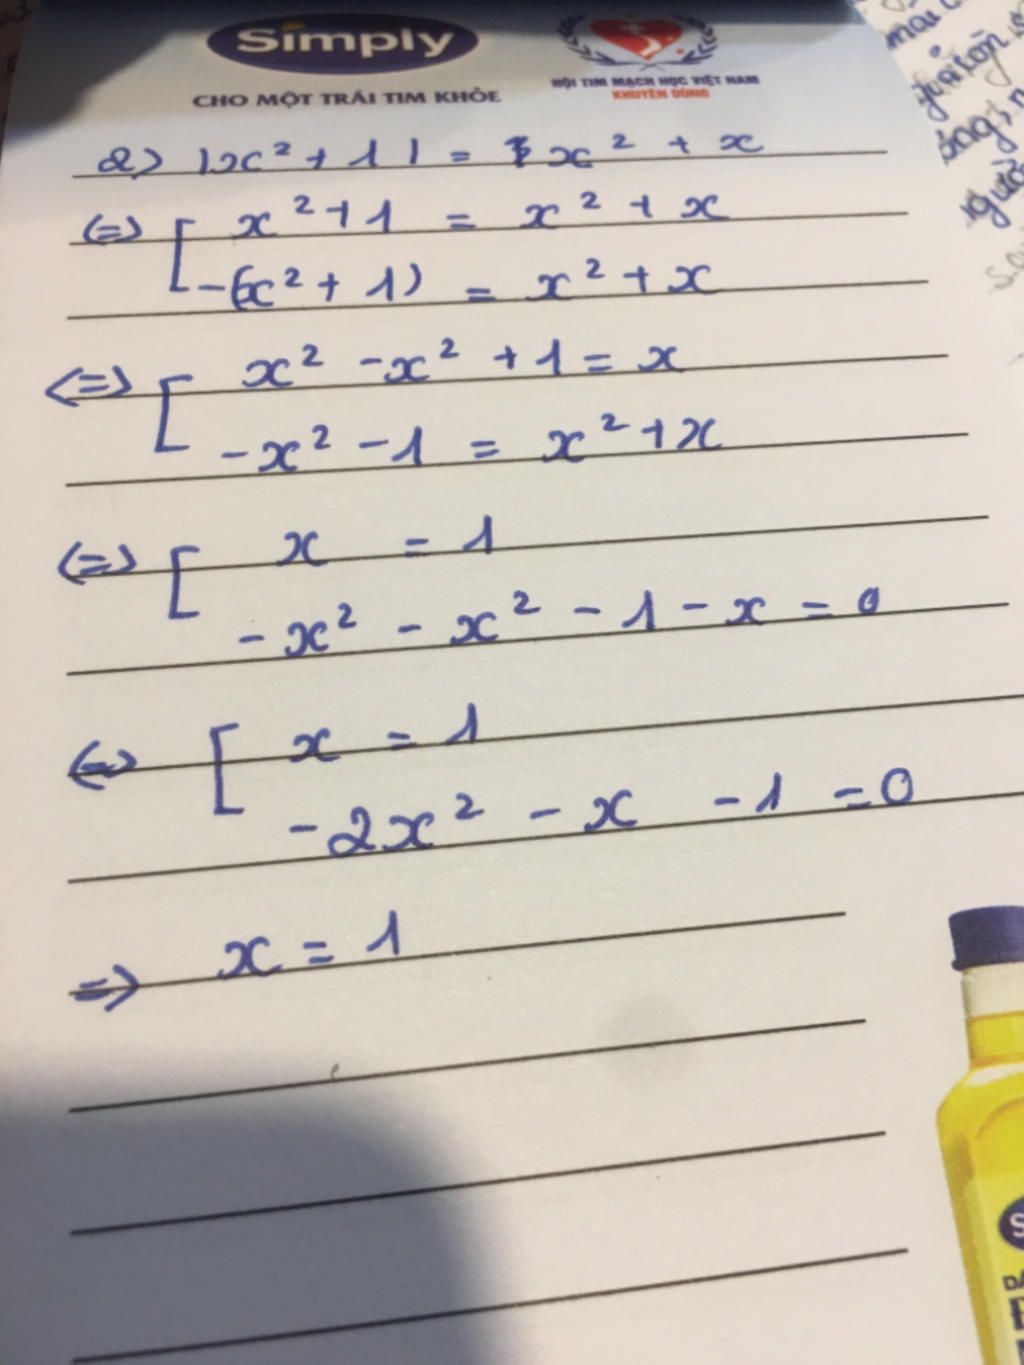 Simply
CHO MỘT TRÁI TIM KHỎE
HỘI TIM MẠCH HỌC VIỆT NAM
KHUYÊN DÙNG
a) |x² + 1| = x² + x
<=> [ x² + 1 = x² + x
-(x² + 1) = x² + x
<=> [ x² - x² + 1 = x
-x² - 1 = x² + x
<=> [ x = 1
-x² - x² - 1 - x = 0
<=> [ x = 1
-2x² - x - 1 = 0
=> x = 1